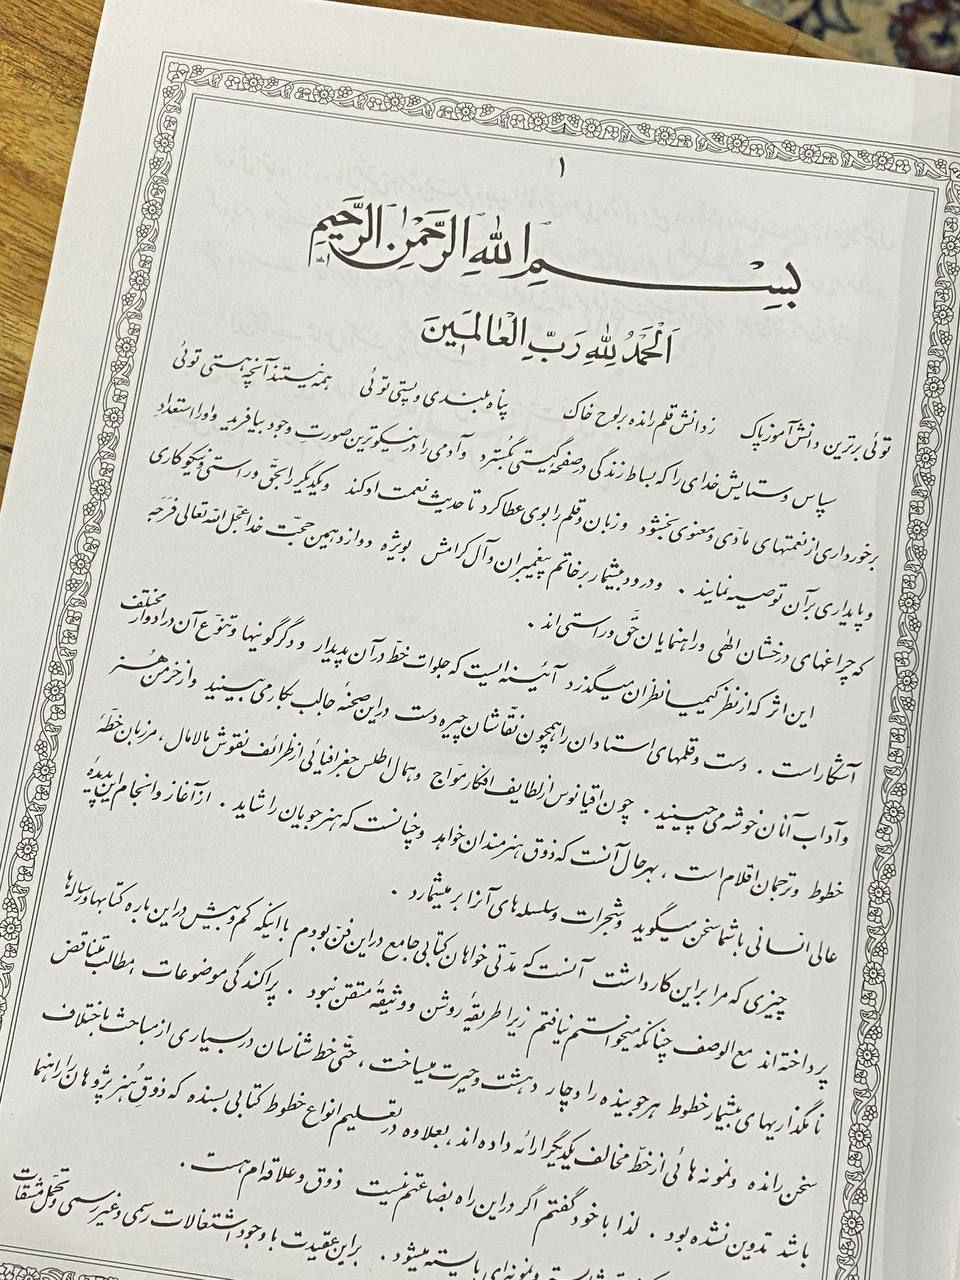 ۱
بسم الله الرحمن الرحیم
اَلْحَمْدُ لِلّٰهِ رَبِّ الْعٰالَمینَ
توئی برترین دانش آموز پاک ز دانش قلم رانده بر لوح خاک پناه بلندی و پستی توئی همه نیستند آنچه هستی توئی
سپاس و ستایش خدای را که بساط زندگی در صفحهٔ گیتی بگسترد و آدمی را در نیکوترین صورت وجود بیافرید و او را استعداد
برخورداری از نعمتهای مادّی و معنوی بخشود و زبان و قلم را بوی عطا کرد تا حدیث نعمت او کند و یکدیگر را بحقّ و راستی و نیکوکاری
و پایداری بر آن توصیه نمایند . و درود بیشمار بر خاتم پیغمبران و آل کرامش بویژه دوازدهمین حجّت خدا عجّل الله تعالی فرجه
که چراغهای درخشان الٰهی و راهنمایان حقّ و راستی اند .
این اثر که از نظر کیمیا نظران میگذرد آئینه ایست که جلوات خطّ در آن پدیدار و دگرگونیها و تنوّع آن در ادوار مختلف
آشکار است . دست و قلمهای استادان را همچون نقّاشان چیره دست در این صحنهٔ جالب بکار می بینید و از خرمن هنر
و آداب آنان خوشه می چینید . چون اقیانوس از لطایف افکار موّاج و بمال اطلس جغرافیائی از ظرائف نقوش مالامال ، مرزبان خطّهٔ
خطوط و ترجمان اقلام است ، بهر حال آنست که ذوق هنرمندان خواهد و چنانست که هنرجویان را شاید . از آغاز و انجام این پدیدهٔ
عالی انسانی با شما سخن میگوید و شجرات و سلسله های آنرا بر میشمارد .
چیزی که مرا بر این کار داشت آنست که مدّتی خواهان کتابی جامع در این فن بودم با اینکه کم و بیش در این باره کتابها و رساله ها
پرداخته اند مع الوصف چنانکه میخواستم نیافتم زیرا طریقهٔ روشن و وثیقهٔ متقن نبود . پراکندگی موضوعات ، مطالب متناقض
نامگذاریهای بیشمار خطوط هر جوینده را دچار دهشت و حیرت میساخت ، حتّی خطّ شناسان در بسیاری از مباحث باختلاف
سخن رانده و نمونه هائی از خطّ مخالف یکدیگر ارائه داده اند ، بعلاوه در تعلیم انواع خطوط کتابی بسنده که ذوق هنرپژوهان را راهنما
باشد تدوین نشده بود . لذا با خود گفتم اگر در این راه بضاعتم نیست ذوق و علاقه ام هست .
و نمونه ای بایسته میشود . بر این عقیدت با وجود اشتغالات رسمی و غیر رسمی و تحمّل مشقّات